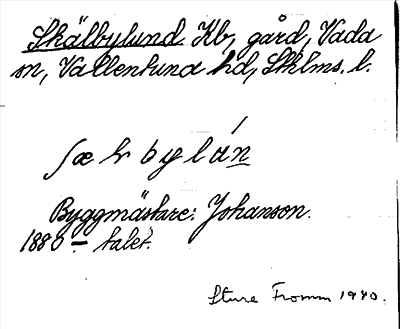 Skälbylund. Kb, gård, Vada
sn, Vallentuna hd, Sthlms. l.
ʃæ lv b y l ú n
Byggmästare: Johanson.
1880 – talet.
Sture Fromm 1940.